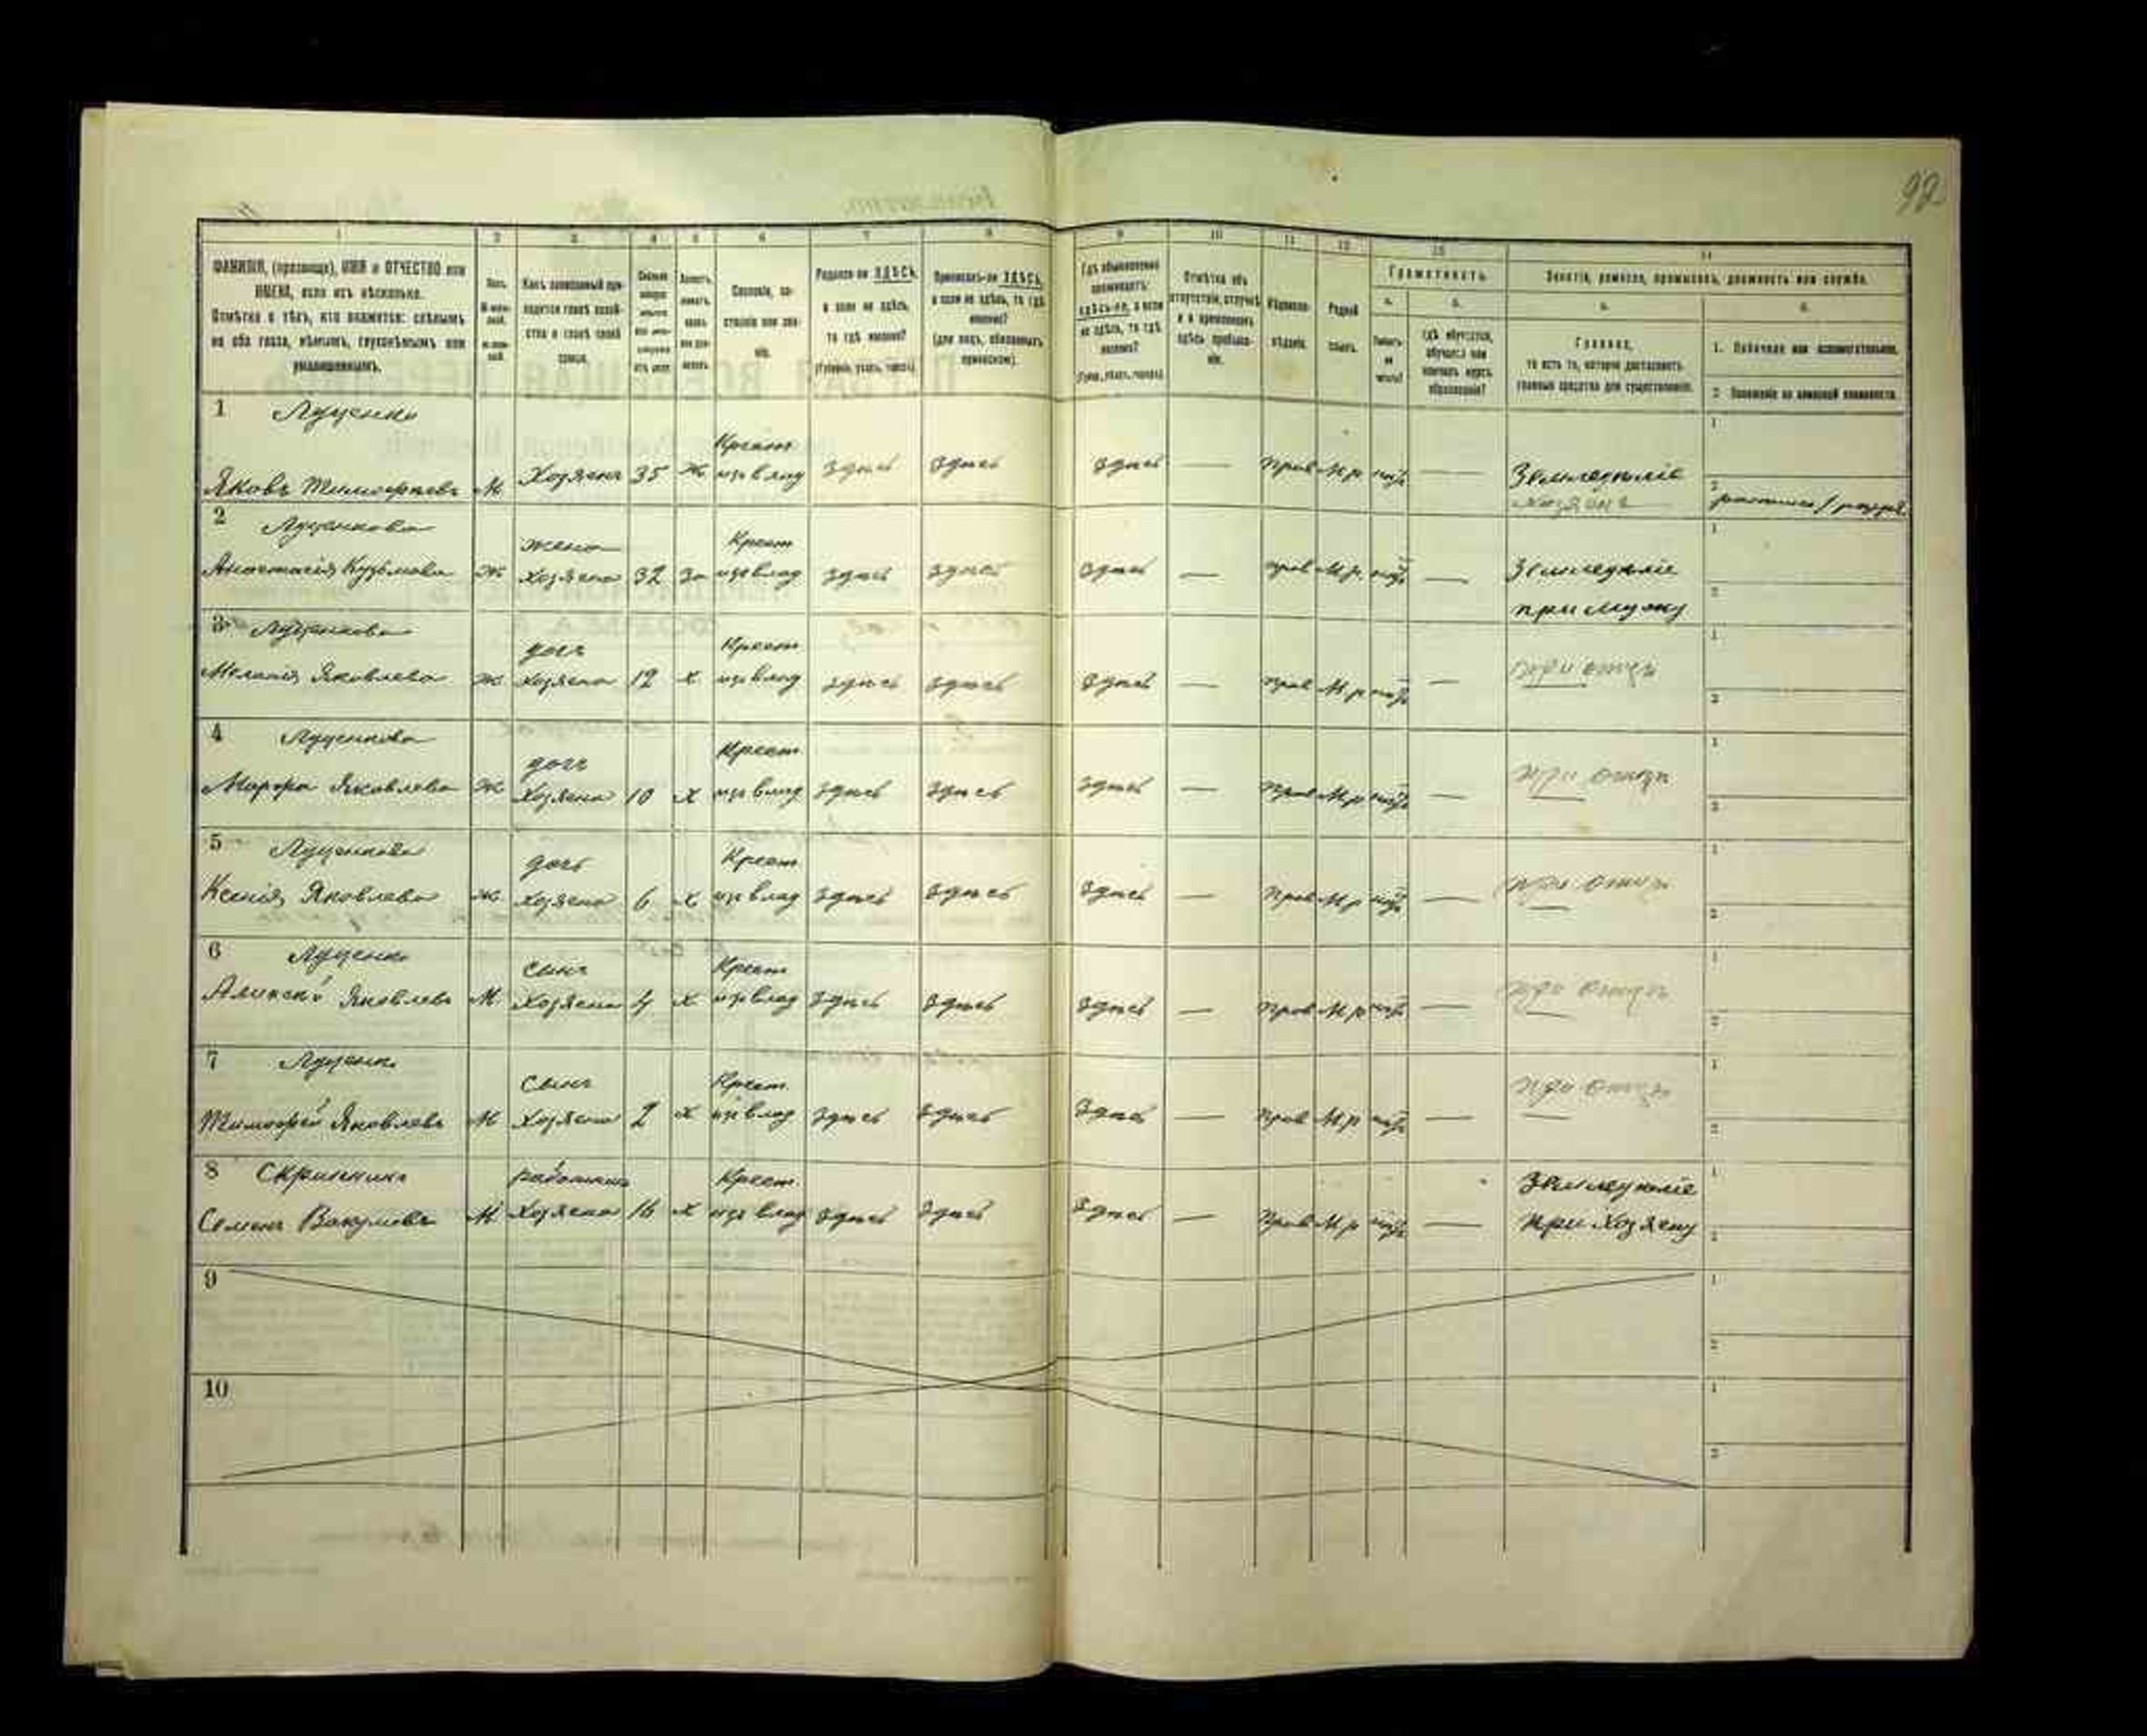 92
1 2 3 4 5 6 7 8 9 10 11 12 13 14
ФАМИЛІЯ, (прозвище), ИМЯ и ОТЧЕСТВО или ИМЕНА, если ихъ нѣсколько.
Отмѣтка о тѣхъ, кто окажется: слѣпымъ на оба глаза, нѣмымъ, глухонѣмымъ или умалишеннымъ.
Полъ.
Какъ записанный приходится главѣ хозяйства и главѣ своей семьи.
Сословіе, состояніе или званіе.
Родился-ли ЗДѢСЬ, а если не здѣсь, то гдѣ именно?
(Губернія, уѣздъ, городъ).
Приписанъ-ли ЗДѢСЬ, а если не здѣсь, то гдѣ именно?
(для лицъ, обязанныхъ припискою).
Гдѣ обыкновенно проживаетъ: здѣсь-ли, а если не здѣсь, то гдѣ именно?
(Губ., уѣздъ, городъ).
Отмѣтка объ отсутствіи, отлучкѣ и о временномъ здѣсь пребываніи.
Вѣроисповѣданіе.
Родной языкъ.
Грамотность.
а. Умѣетъ ли читать?
б. Гдѣ обучается, обучался или кончилъ курсъ образованія?
Занятіе, ремесло, промыселъ, должность или служба.
а. Главное, то есть то, которое доставляетъ главныя средства для существованія.
б.
1. Побочное или вспомогательное.
2. Положеніе по воинской повинности.
1 Луценко
Яковъ Тимофѣевъ М Хозяинъ 35 Ж Крест. изъ влад здѣсь здѣсь здѣсь — Прав М.р нѣтъ — Земледѣліе хозяинъ
2 Луценкова
Анастасія Кузьмова Ж жена хозяина 32 За Крест изъ влад здѣсь здѣсь здѣсь — прав М.р. нѣтъ — Земледѣліе при мужу
3 Луценкова
Меланія Яковлева Ж дочь хозяина 12 х Крест изъ влад здѣсь здѣсь здѣсь — прав М р нѣтъ — при отцѣ
4 Луценкова
Марфа Яковлева Ж дочь хозяина 10 х Крест изъ влад здѣсь здѣсь здѣсь — Прав М.р нѣтъ — при отцѣ
5 Луценкова
Ксенія Яковлева Ж дочь хозяина 6 х Крест изъ влад здѣсь здѣсь здѣсь — Прав М р нѣтъ — при отцѣ
6 Луценко
Алексѣй Яковлевъ М. сынъ хозяина 4 х Крест изъ влад здѣсь здѣсь здѣсь — Прав М р нѣтъ — при отцѣ
7 Луценко
Тимофѣй Яковлевъ М сынъ хозяина 2 х Крест. изъ влад здѣсь здѣсь здѣсь — Прав М р нѣтъ — при отцѣ
8 Скрипникъ
Семенъ Вакумовъ М работникъ хозяина 16 х Крест. изъ влад здѣсь здѣсь здѣсь — Прав М р нѣтъ — Земледѣліе при хозяину
9
10